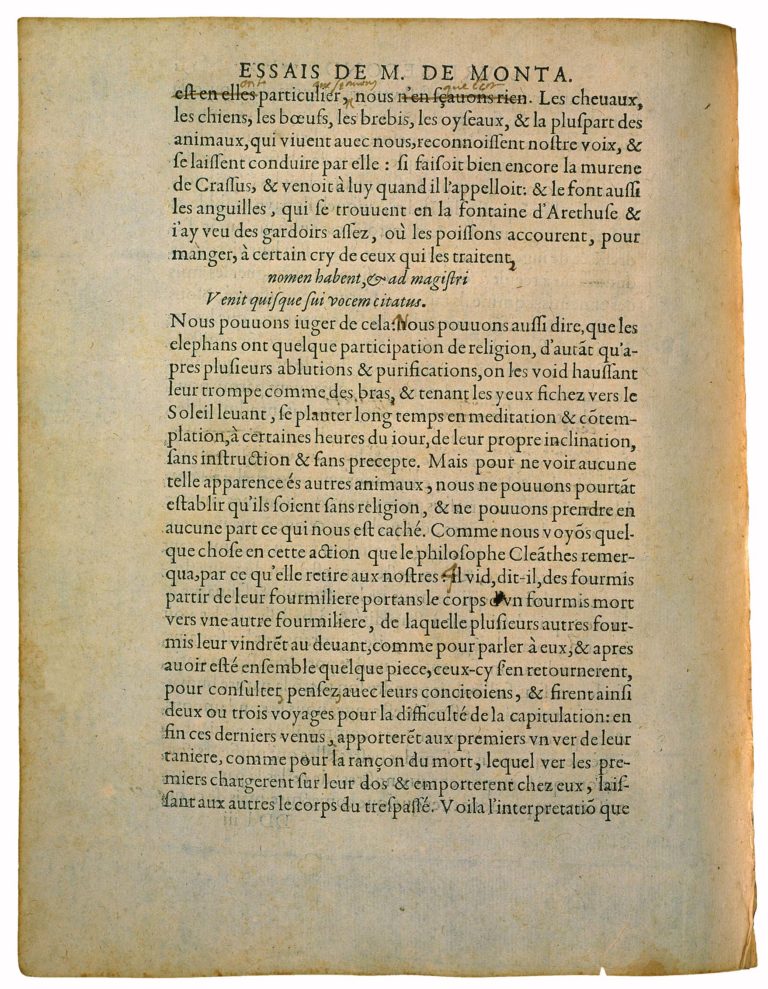 ESSAIS DE M. DE MONTA.
est en elles particulier, nous n'en sçauons rien. Les cheuaux,
les chiens, les bœufs, les brebis, les oyſeaux, & la pluſpart des
animaux, qui viuent auec nous, reconnoiſſent noſtre voix, &
ſe laiſſent conduire par elle : ſi faiſoit bien encore la murene
de Craſſus, & venoit à luy quand il l'appelloit: & le font auſſi
les anguilles, qui ſe trouuent en la fontaine d'Arethuſe &
i'ay veu des gardoirs aſſez, où les poiſſons accourent, pour
manger, à certain cry de ceux qui les traitent,
nomen habent, & ad magiſtri
Venit quiſque ſui vocem citatus.
Nous pouuons iuger de cela: Nous pouuons auſſi dire, que les
elephans ont quelque participation de religion, d'autãt qu'a-
pres pluſieurs ablutions & purifications, on les void hauſſant
leur trompe comme des bras, & tenant les yeux fichez vers le
Soleil leuant, ſe planter long temps en meditation & cõtem-
plation, à certaines heures du iour, de leur propre inclination,
ſans inſtruction & ſans precepte. Mais pour ne voir aucune
telle apparence és autres animaux, nous ne pouuons pourtãt
eſtablir qu'ils ſoient ſans religion, & ne pouuons prendre en
aucune part ce qui nous eſt caché. Comme nous voyõs quel-
que choſe en cette action que le philoſophe Cleãthes remer-
qua, par ce qu'elle retire aux noſtres: Il vid, dit-il, des fourmis
partir de leur fourmiliere portans le corps d'vn fourmis mort
vers vne autre fourmiliere, de laquelle pluſieurs autres four-
mis leur vindrẽt au deuant, comme pour parler à eux, & apres
auoir eſté enſemble quelque piece, ceux-cy s'en retournerent,
pour conſulter, penſez, auec leurs concitoiens, & firent ainſi
deux ou trois voyages pour la difficulté de la capitulation: en
fin ces derniers venus, apporterẽt aux premiers vn ver de leur
taniere, comme pour la rançon du mort, lequel ver les pre-
miers chargerent ſur leur dos & emporterent chez eux, laiſ-
ſant aux autres le corps du treſpaſſé. Voila l'interpretatiõ que